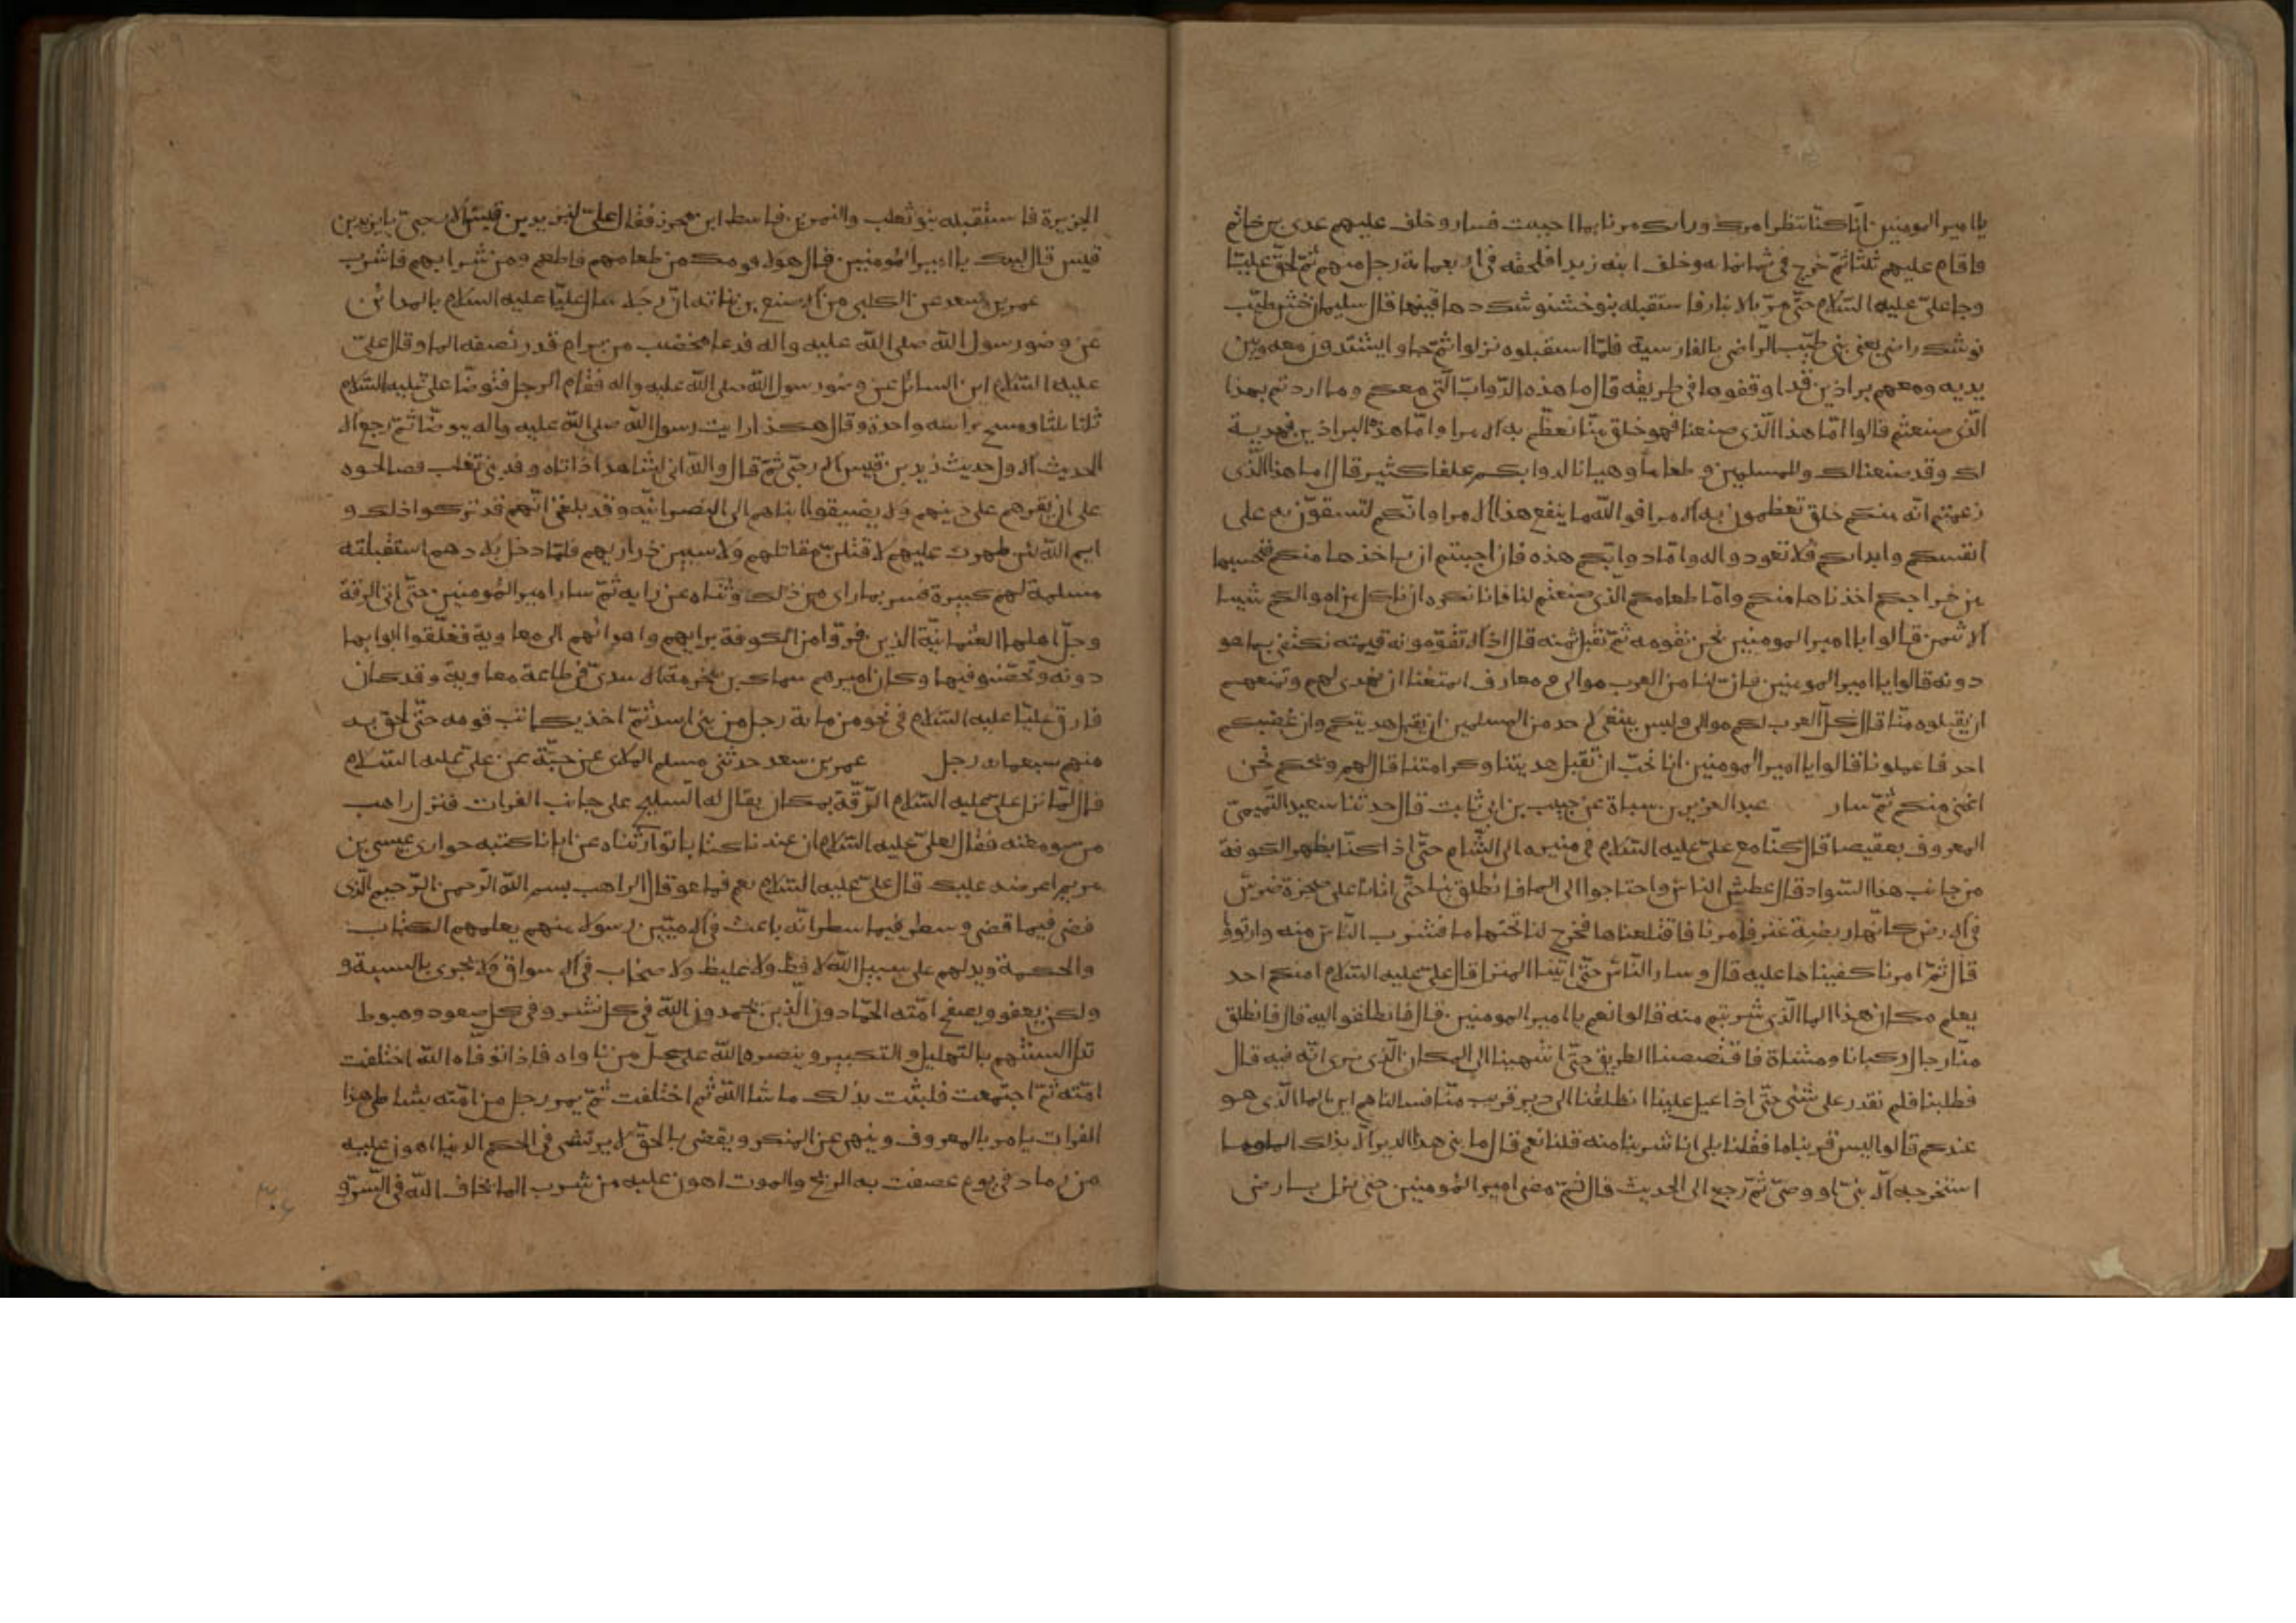 يا امير المومنين انّا كنّا ننتظر امرك ورايك مرنا بما احببت فسار وخلف عليهم عدى بن حاتم
فاقام عليهم ثلثا ثمّ خرج فى ثمانمايه وخلف ابنه زيدا فلحقه فى اربعماية رجل منهم ثمّ لحق عليّا
وجا علىّ عليه السّلام حتّى مرّ بالانبار فاستقبله بنو خشنوشك دهاقينها قال سليمان خش طيّب
نوشك راضى يعنى بنى طيّب الرّاضى بالفارسية فلمّا استقبلوه نزلوا ثمّ جاوا يشتدّون معه وبين
يديه ومعهم براذين قد اوقفوها فى طريقه قال ما هذه الدّوابّ الّتى معكم وما اردتم بهذا
الّذى صنعتم قالوا امّا هذا الّذى صنعنا فهو خلق منّا نعظّم به الامرا وامّا هذه البراذين فهدية
لك وقد صنعنا لك وللمسلمين طعاما وهيانا لدوابكم علفا كثيرا قال اما هذا الّذى
زعمتم انّه منكم خلق تعظمون به الامرا فوالله ما ينفع هذا الامرا وانّكم لتشقّون به على
انفسكم وابدانكم فلا تعودوا له وامّا دوابّكم هذه فان احببتم ان ناخذها منكم فنحسبها
من خراجكم اخذناها منكم وامّا طعامكم الّذى صنعتم لنا فانا نكره ان ناكل من اموالكم شيا
الا بثمن قالوا يا امير المومنين نحن نقومه ثمّ نقبل ثمنه قال اذا لا تقوّمونه قيمته نكتفى بما هو
دونه قالوا يا امير المومنين فان لنا من العرب موالى ومعارف اتمنعنا ان نهدى لهم وتمنعهم
ان يقبلوه منّا قال كلّ العرب لكم موالى وليس ينبغى لاحد من المسلمين ان يقبل هديتكم وان غصبكم
احد فاعلمونا قالوا يا امير المومنين انا نحبّ ان تقبل هديتنا وكرامتنا قال لهم ويحكم نحن
اغنى منكم ثمّ سار عبد العزيز بن سباة عن حبيب بن ابى ثابت قال حدثنا سعيد التّميمىّ
المعروف بعقيصا قال كنّا مع علىّ عليه السّلام فى مسيره الى الشّام حتّى اذا كنّا بظهر الكوفة
من جانب هذا السّواد قال عطش النّاس واحتاجوا الى الما فانطلق بنا حتّى اتانا على صخرة ضرس
فى الارض كانّها ربضة عنز فامرنا فاقتلعناها فخرج لنا تحتها ما فشرب النّاس منه وارتووا
قال ثمّ امرنا فكفيناها عليه قال وسار النّاس حتّى اتينا المنزل قال علىّ عليه السّلام امنكم احد
يعلم مكان هذا الما الّذى شربتم منه قالوا نعم يا امير المومنين قال فانطلقوا اليه قال فانطلق
منّا رجال ركبانا ومشاة فاقتصصنا الطريق حتّى انتهينا الى المكان الّذى نرى انّه فيه قال
فطلبنا فلم نقدر على شئى حتّى اذا عيل علينا انطلقنا الى دير قريب منّا فسالناهم اين الما الّذى هو
عندكم قالوا ليس قربنا ما فقلنا بلى انا شربنا منه قلنا نعم قال ما بنى هذا الدير الّا بذلك الما وما
استخرجه الّا نبىّ او وصىّ ثمّ رجع الى الحديث قال ثمّ مضى امير المومنين حتى نزل بارض
الجزيرة فاستقبله بنو تغلب والنمر بن قاسط ابن محرز فقال علىّ ليزيد بن قيس الارحبىّ يا يزيد بن
قيس قال لبيك يا امير المومنين قال هولا قومك من طعامهم فاطعم ومن شرابهم فاشرب
عمر بن سعد عن الكلبى من الاصبغ بن نباته انّ رجلا سال عليّا عليه السّلام بالمدائن
عن وضو رسول الله صلى الله عليه واله فدعا بمخضب من برام قد نصفه الما وقال علىّ
عليه السّلام اين السائل عن وضو رسول الله صلى الله عليه واله فقام الرجل فتوضّا علىّ عليه السّلام
ثلثا ثلثا ومسح براسه واحدة وقال هكذا رايت رسول الله صلى الله عليه واله يتوضّا ثمّ رجع الى
الحديث الاول حديث يزيد بن قيس الارحبّى ثمّ قال والله انى لشاهد اذ اتاه وفد بنى تغلب فصالحوه
على ان يقرهم على دينهم ولا يضعوا ابناهم الى النصرانيّه وقد بلغنى انّهم قد تركوا ذلك و
ايم الله لئن ظهرت عليهم لاقتلنّ مقاتلهم ولاسبين ذراريهم فلمّا دخل بلادهم استقبلته
مسلمة لهم كبيرة فسر بما راى من ذلك وثناه عن رايه ثمّ سار امير المومنين حتّى اتى الرقة
وجلّ اهلها العثمانيّة الذين فرّوا من الكوفة برايهم واهوائهم الى معاوية فغلّقوا ابوابها
دونه وتحصّنوا فيها وكان اميرهم سماك بن مخرمة الاسدىّ فى طاعة معاوية وقد كان
فارق عليّا عليه السّلام فى نحو من ماية رجل من بنى اسد ثمّ اخذ يكاتب قومه حتّى لحق به
منهم سبعمايه رجل عمر بن سعد حدثنى مسلم الملاى عن حبّة عن علىّ عليه السّلام
قال لمّا نزل علىّ عليه السّلام الرّقّة بمكان يقال له البليخ على جانب الفرات فنزل راهب
من صومعته فقال لعلىّ عليه السّلام ان عندنا كتابا توارثناه عن ابائنا كتبه حوارى عيسى بن
مريم اعرضه عليك قال علىّ عليه السّلام نعم فما هو قال الراهب بسم الله الرّحمن الرّحيم الّذى
قضى فيما قضى وسطر فيما سطر انّه باعث فى الاميّين رسولا منهم يعلمهم الكتاب
والحكمة ويدلهم على سبيل الله لا فظّ ولا غليظ ولا صخاب فى الاسواق ولا يجزى بالسيئة و
ولكن يعفو ويصفح امّته الحمّادون الّذين يحمدون الله فى كل نشز وفى كل صعود وهبوط
تذل السنتهم بالتهليل والتكبير وينصره الله على كلّ من ناواه فاذا توفّاه الله اختلفت
امّته ثمّ اجتمعت فلبثت بذلك ما شا الله ثم اختلفت ثمّ يمر رجل من امّته بشاطى هذا
الفرات يامر بالمعروف وينهى عن المنكر ويقضى بالحقّ لا يرتشى فى الحكم الدنيا اهون عليه
من رماد فى يوم عصفت به الريح والموت اهون عليه من شرب الما يخاف الله فى السّرّ و